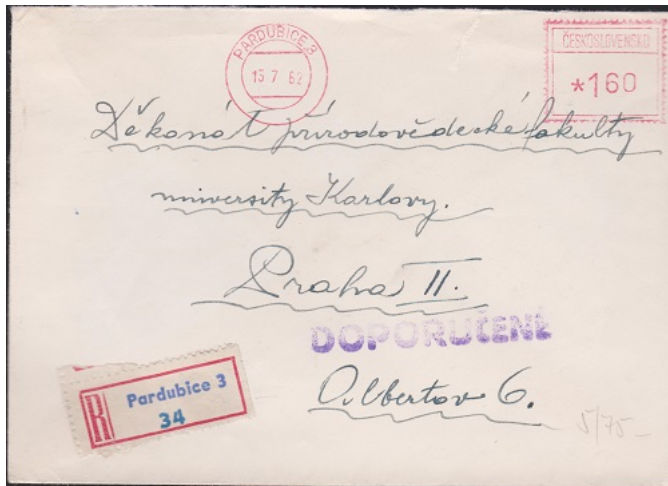 PARDUBICE 3
15 7 62
ČESKOSLOVENSKO
*160
Děkanát přírodovědecké fakulty
university Karlovy.
Praha II.
DOPORUČENĚ
Albertov 6.
R
Pardubice 3
34
5/75-